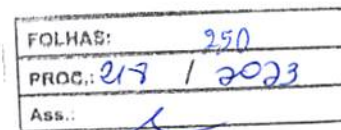 FOLHAS: 250
PROC.: 218 / 2023
Ass.: